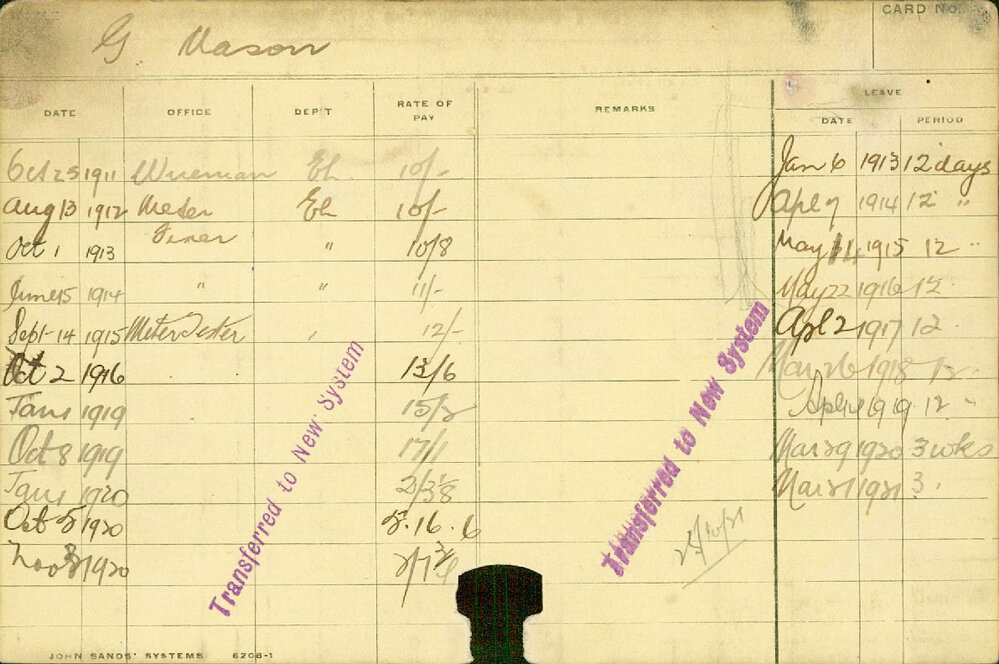 CARD No.
G. Mason
DATE OFFICE DEP'T RATE OF PAY REMARKS LEAVE
DATE PERIOD
Oct 25 1911 Wireman El. 10/- Jan 6 1913 12 days
Aug 13 1912 Meter El 10/- Apl 7 1914 12 "
Oct 1 1913 Fixer " 10/8 May 1915 12 "
June 15 1914 " " 11/- May 22 1916 12
Sept 14 1915 Meter Tester " 12/- Apl 2 1917 12
Oct 2 1916 13/6 Mar 26 1918 12
Jan 1 1919 15/2 Apl 1919 12 "
Oct 8 1919 17/1 Mar 29 1920 3 wks
Jan 1 1920 Mar 21 1921 3
Oct 5 1920 5.16.6
1920
Transferred to New System
Transferred to New System
JOHN SANDS' SYSTEMS 6206-1